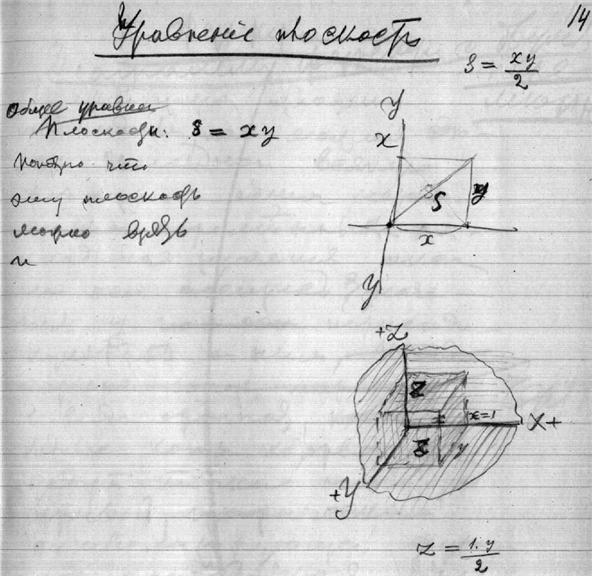 14
Уравненіе плоскости
S = xy/2
Общее уравнен
Плоскости: S = xy
что
эту плоскость
можно взять
и
y
x
S
y
x
y
+Z
Z
x=1
X+
Z
y
+Y
Z = 1.y/2